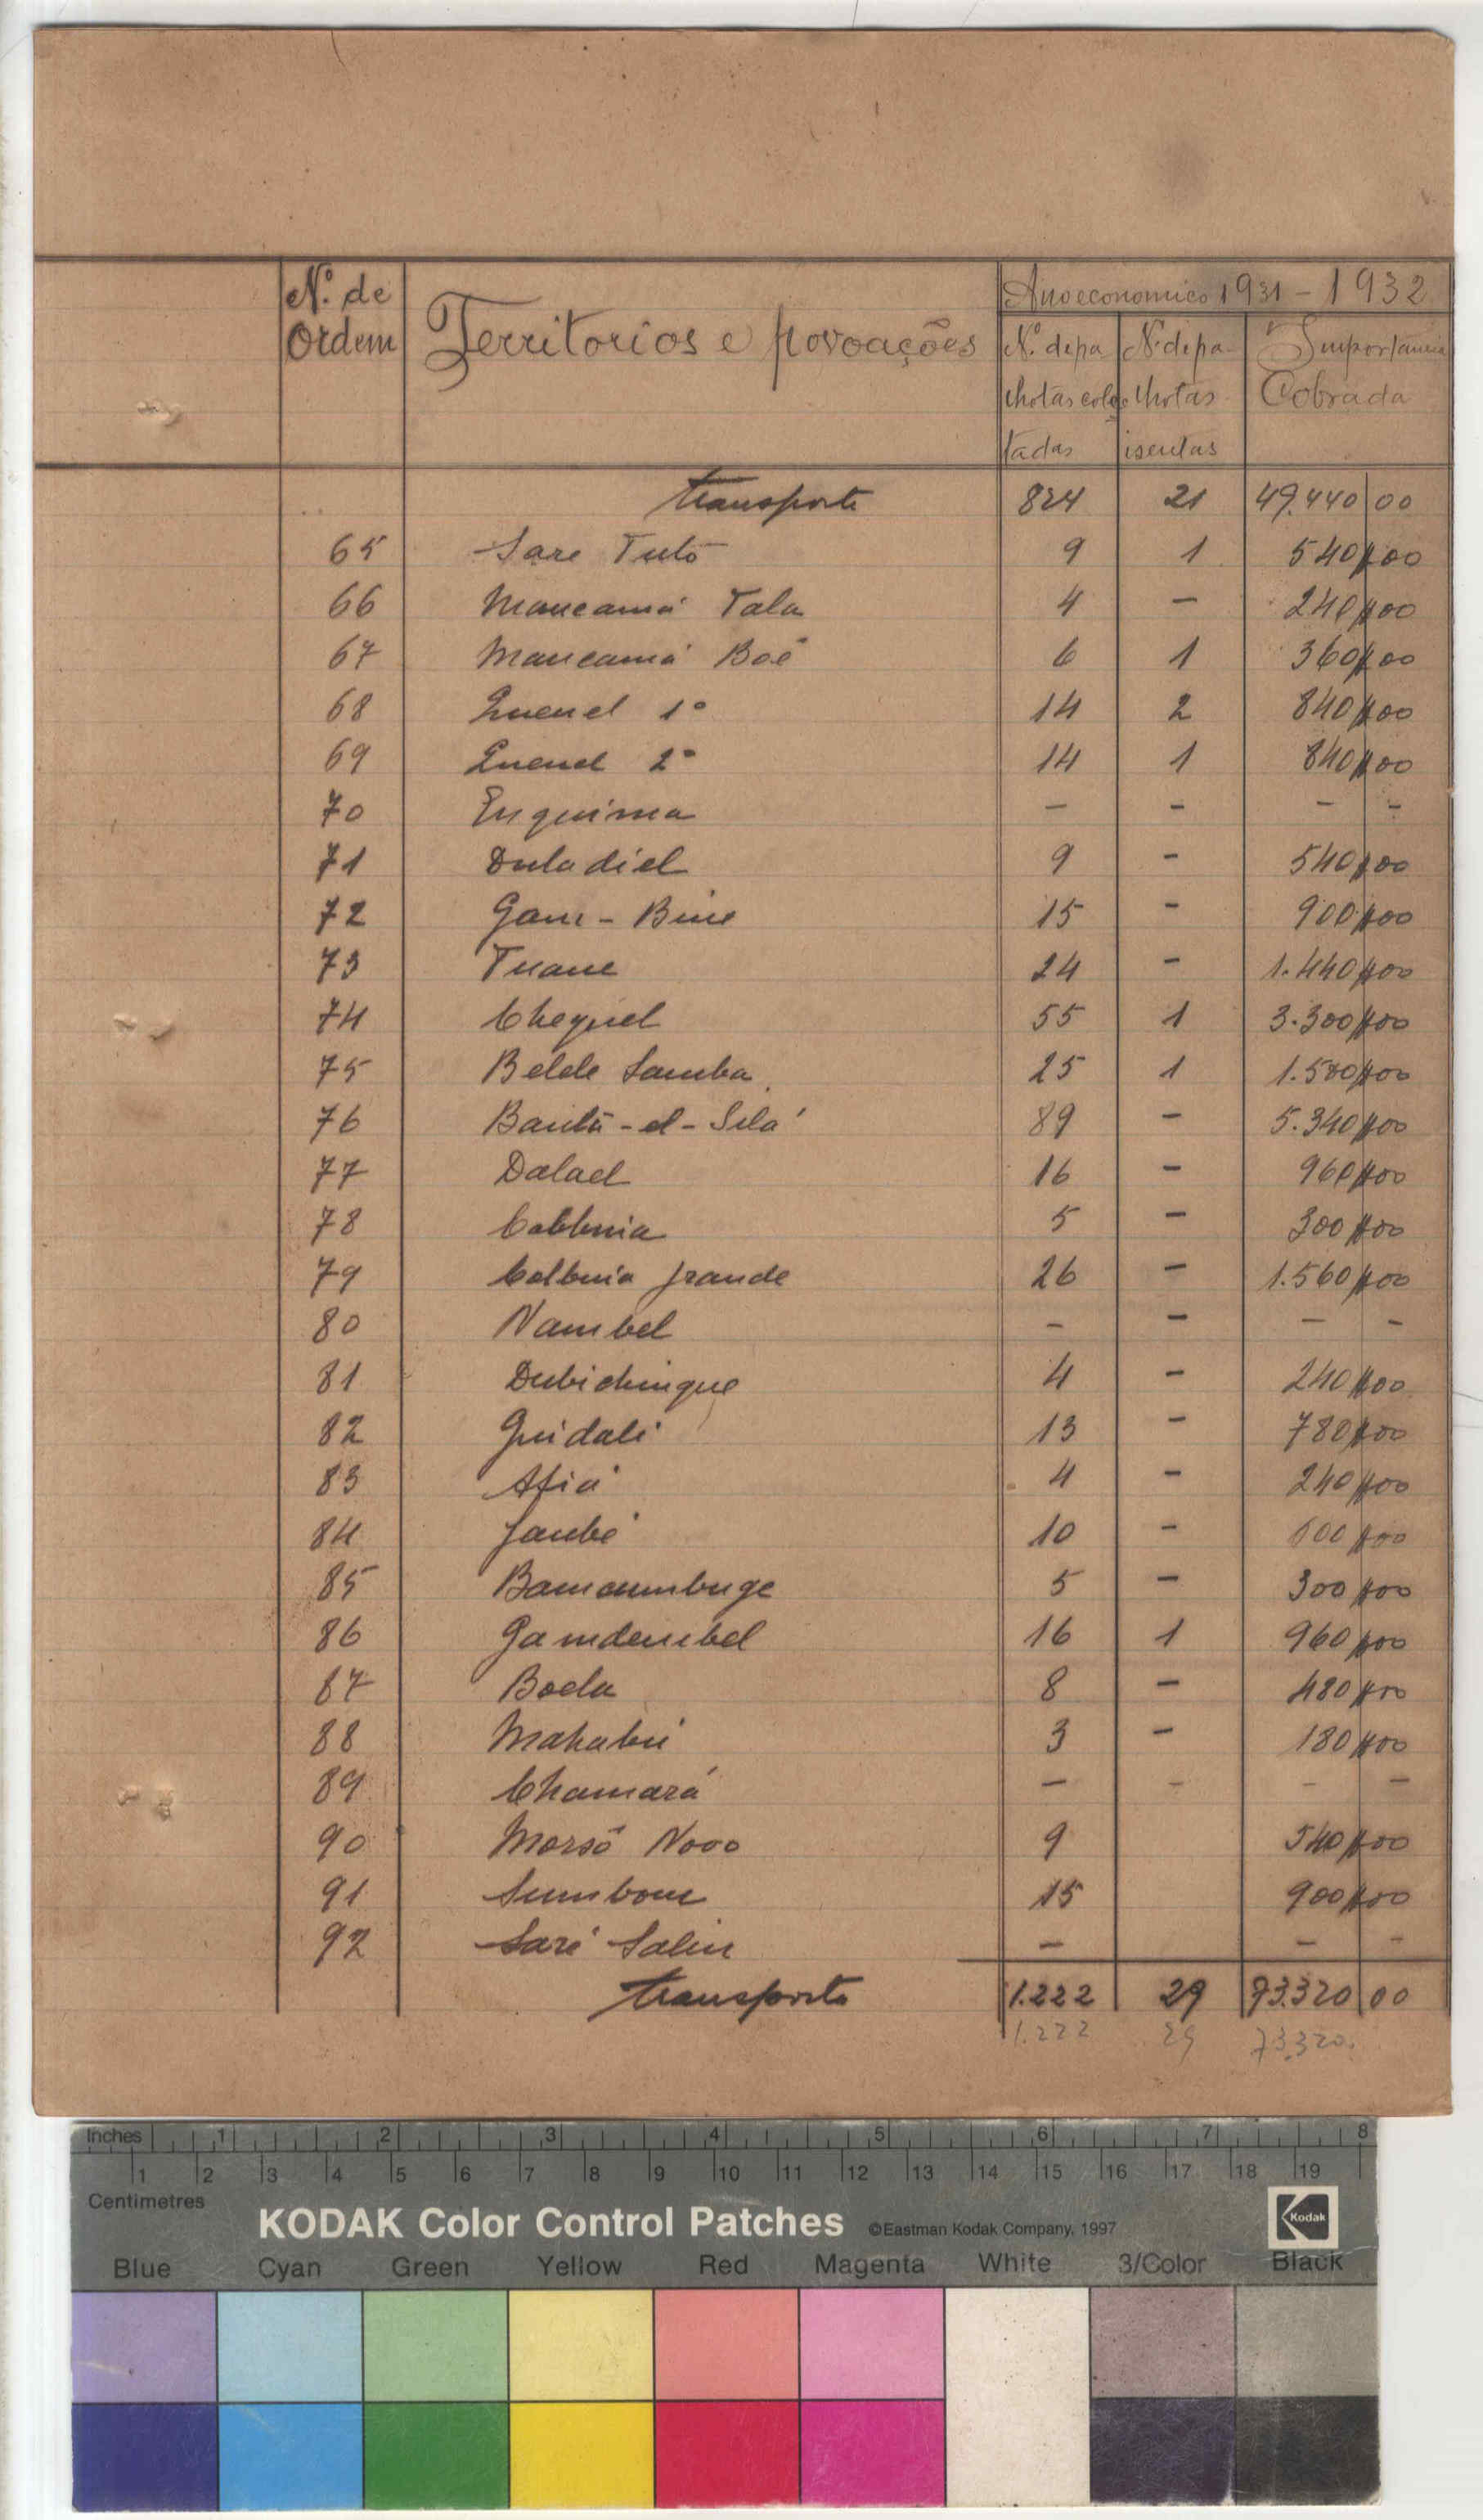 N.º de Ordem Territorios e povoações Ano economico 1931 - 1932
N.º de palhotas colectadas N.º de palhotas isentas Importancia Cobrada
Transporte 824 21 49.440 00
65 Sare Tutó 9 1 540$00
66 Mancamá Tala 4 - 240$00
67 Mancamá Boé 6 1 360$00
68 Quenel 1º 14 2 840$00
69 Quenel 2º 14 1 840$00
70 Enquima - - - -
71 Duladiel 9 - 540$00
72 9 15 - 900$00
73 Tuane 24 - 1.440$00
74 Chequel 55 1 3.300$00
75 Belde Samba 25 1 1.500$00
76 -el-Silá 89 - 5.340$00
77 Dalael 16 - 960$00
78 5 - 300$00
79 grande 26 - 1.560$00
80 Nambel - - - -
81 Dubichingue 4 - 240$00
82 Guidali 13 - 780$00
83 Afiá 4 - 240$00
84 Jambé 10 - 600$00
85 5 - 300$00
86 Gamdembel 16 1 960$00
87 Boela 8 - 480$00
88 3 - 180$00
89 Chamará - - - -
90 Morsó Novo 9 540$00
91 15 900$00
92 Saré - - -
Transporte 1.222 29 73.320 00
1.222 29 73.320.
Inches 1 2 3 4 5 6 7 8
1 2 3 4 5 6 7 8 9 10 11 12 13 14 15 16 17 18 19
Centimetres
KODAK Color Control Patches ©Eastman Kodak Company, 1997 Kodak
Blue Cyan Green Yellow Red Magenta White 3/Color Black